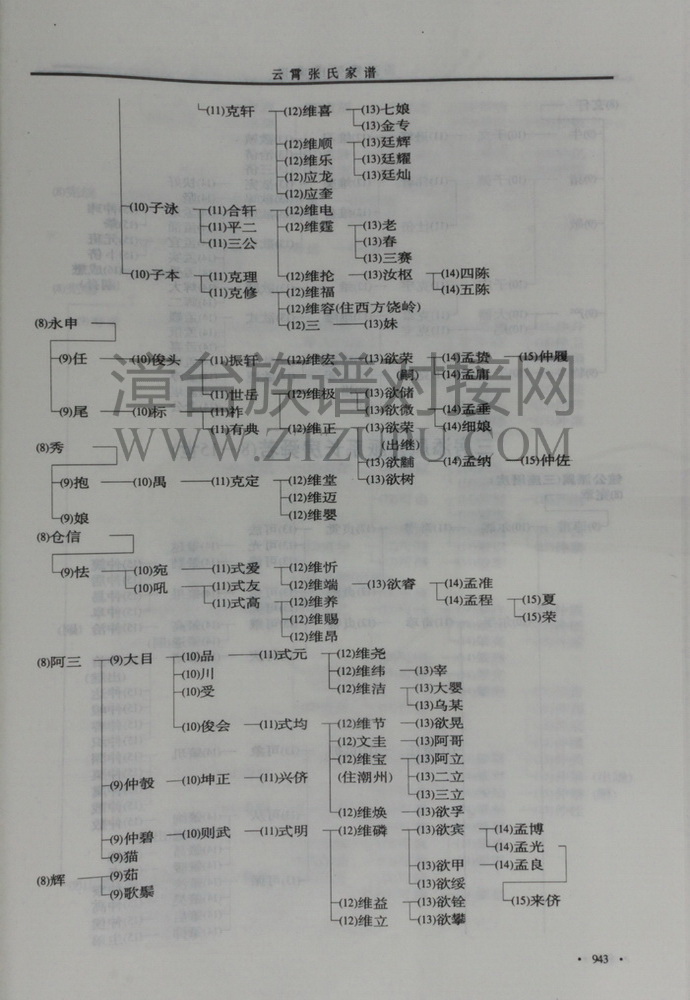 云霄张氏家谱
(11)克轩 (12)维喜 (13)七娘
(13)金专
(12)维顺 (13)廷辉
(12)维乐 (13)廷耀
(12)应龙 (13)廷灿
(12)应奎
(10)子泳 (11)合轩 (12)维电
(11)平二 (12)维霆 (13)老
(11)三公 (13)春
(13)三赛
(10)子本 (11)克理 (12)维抡 (13)汝枢 (14)四陈
(11)克修 (12)维福 (14)五陈
(12)维容(住西方饶岭)
(8)永申 (12)三 (13)妹
(9)任 (10)俊头 (11)振轩 (12)维宏 (13)欲荣 (14)孟贽 (15)仲履
(嗣) (14)孟庸
(11)世岳 (12)维极 (13)欲储
(9)尾 (10)标 (11)祚 (13)欲微 (14)孟垂
(11)有典 (12)维正 (13)欲荣 (14)细娘
(8)秀 (出继)
(13)欲黼 (14)孟纳 (15)仲佐
(9)抱 (10)禺 (11)克定 (12)维堂 (13)欲树
(12)维迈
(9)娘 (12)维婴
(8)仓信
(9)怯 (10)宛 (11)式爱 (12)维忻
(10)吼 (11)式友 (12)维端 (13)欲睿 (14)孟准
(11)式高 (12)维养 (14)孟程 (15)夏
(12)维赐 (15)荣
(12)维昂
(8)阿三 (9)大目 (10)品 (11)式元 (12)维尧
(10)川 (12)维纬 (13)宰
(10)受 (12)维洁 (13)大婴
(13)乌某
(10)俊会 (11)式均 (12)维节 (13)欲晃
(12)文圭 (13)阿哥
(12)维宝 (13)阿立
(9)仲彀 (10)坤正 (11)兴侪 (住潮州) (13)二立
(13)三立
(12)维焕 (13)欲孚
(9)仲碧 (10)则武 (11)式明 (12)维磷 (13)欲宾 (14)孟博
(14)孟光
(9)猫 (13)欲甲 (14)孟良
(8)辉 (9)茹 (13)欲绥
(9)歌鬃 (12)维益 (13)欲铨 (15)来侪
(12)维立 (13)欲攀
漳台族谱对接网
WWW.ZTZUPU.COM
· 943 ·